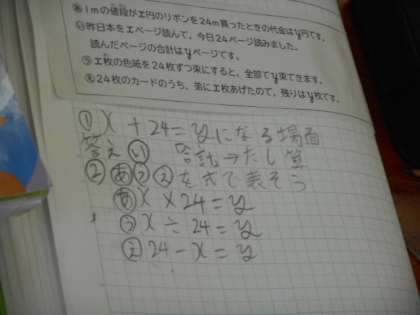 あ 1mの値段がx円のリボンを24m買ったときの代金はy円です。
い 昨日本をxページ読んで、今日24ページ読みました。
読んだページの合計はyページです。
う x枚の色紙を24枚ずつ束にすると、全部でy束できます。
え 24枚のカードのうち、弟にx枚あげたので、残りはy枚です。
① x + 24 = y になる場面
答え い 合計→たし算
② あ う え を式で表そう
あ x × 24 = y
う x ÷ 24 = y
え 24 − x = y